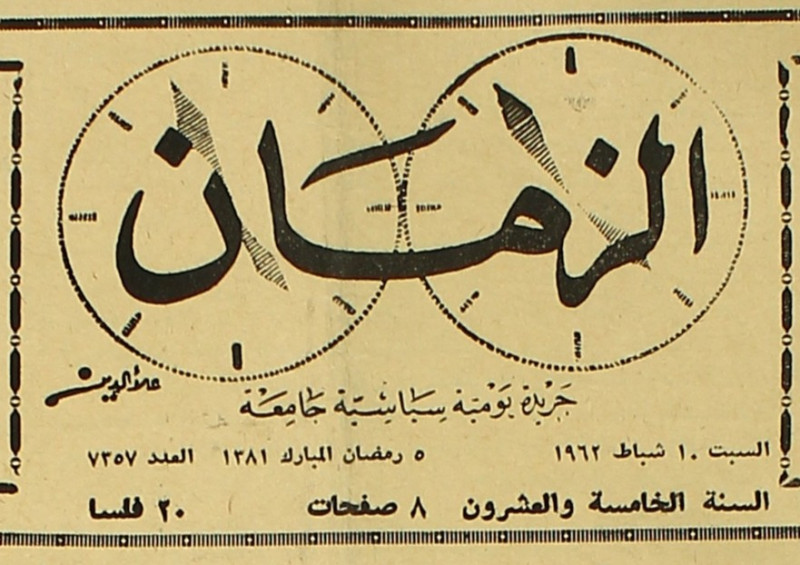 الزمان
علاء الدين
جريدة يومية سياسية جامعة
السبت ١٠ شباط ١٩٦٢ ٥ رمضان المبارك ١٣٨١ العدد ٧٣٥٧
السنة الخامسة والعشرون ٨ صفحات ٢٠ فلسا